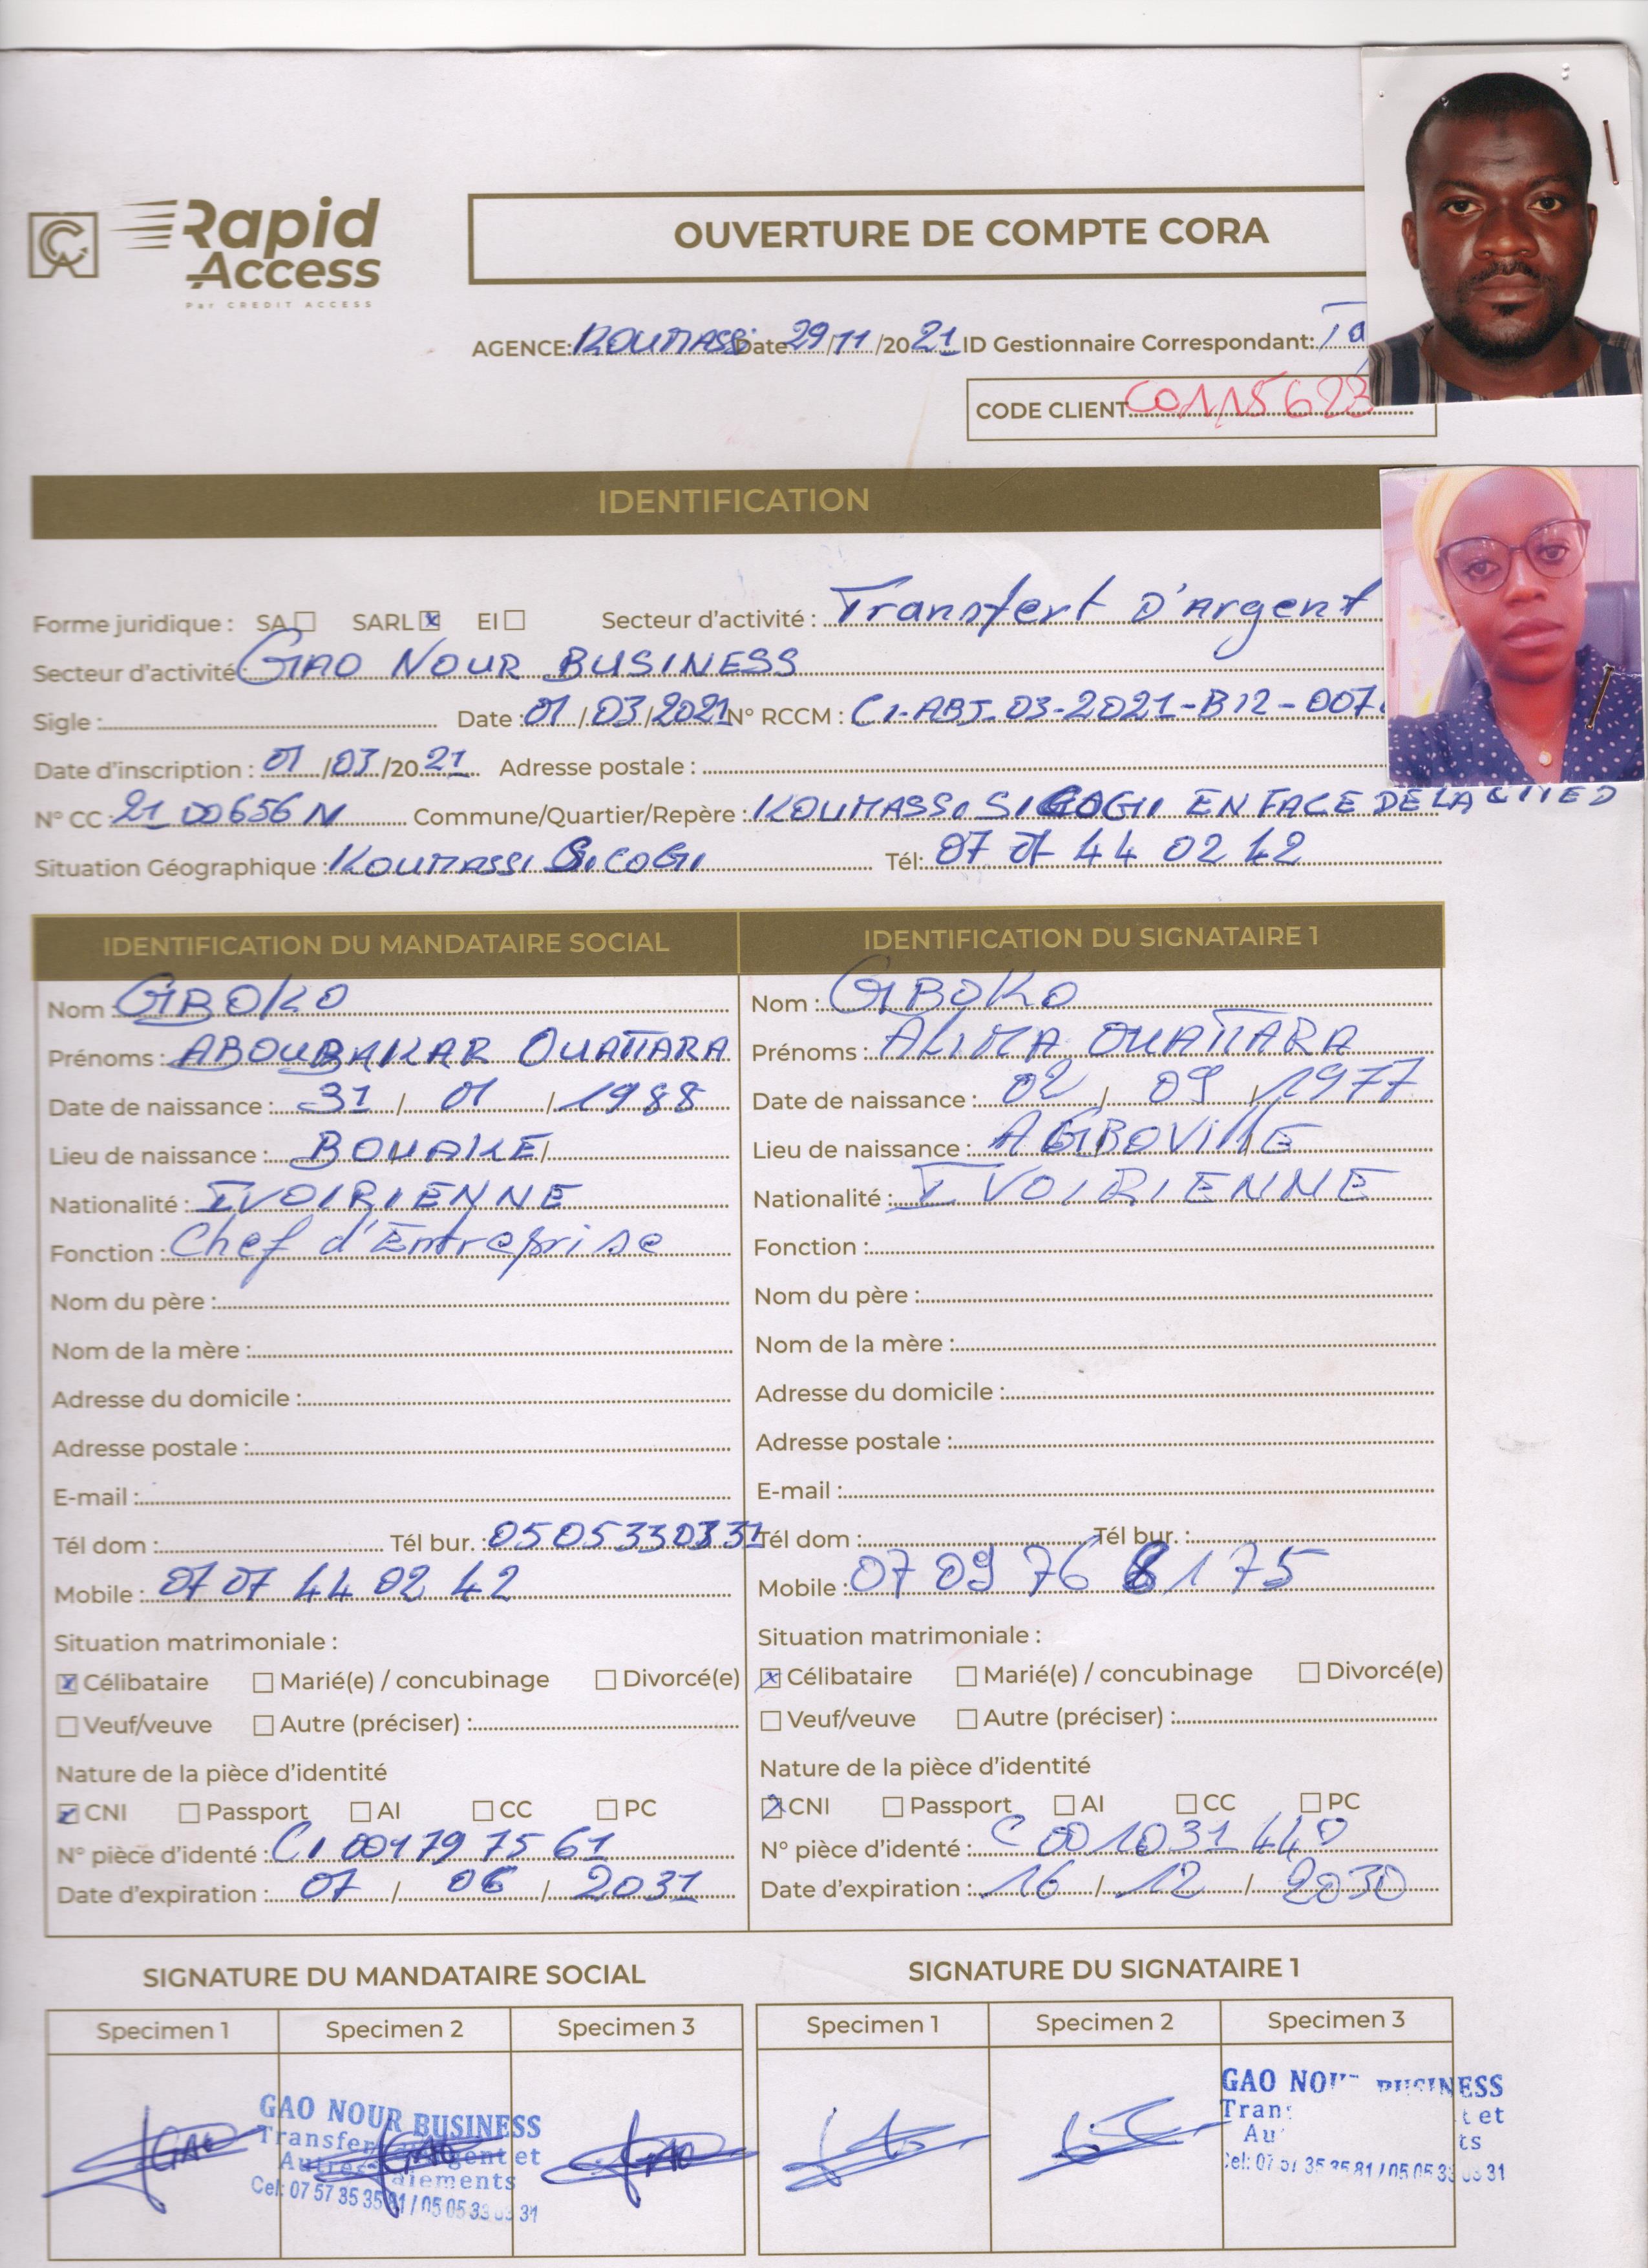 Rapid
Access
Par CREDIT ACCESS
OUVERTURE DE COMPTE CORA
AGENCE: KOUMASSI Date 29/11/2021 ID Gestionnaire Correspondant:
CODE CLIENT C0115623
IDENTIFICATION
Forme juridique : SA SARL x EI Secteur d'activité : Transfert D'Argent
Secteur d'activité GAO NOUR BUSINESS
Sigle : Date : 01/03/2021 N° RCCM : CI-ABJ-03-2021-B12-007
Date d'inscription : 01/03/2021 Adresse postale :
N° CC 21 00656 N Commune/Quartier/Repère : KOUMASSI SICOGI EN FACE DE LA
Situation Géographique : KOUMASSI SICOGI Tél: 07 07 44 02 42
IDENTIFICATION DU MANDATAIRE SOCIAL
Nom : GBOKO
Prénoms : ABOUBAKAR OUATTARA
Date de naissance : 31 / 01 / 1988
Lieu de naissance : BOUAKE
Nationalité : IVOIRIENNE
Fonction : Chef d'Entreprise
Nom du père :
Nom de la mère :
Adresse du domicile :
Adresse postale :
E-mail :
Tél dom : Tél bur. : 0505330331
Mobile : 07 07 44 02 42
Situation matrimoniale :
x Célibataire Marié(e) / concubinage Divorcé(e)
Veuf/veuve Autre (préciser) :
Nature de la pièce d'identité
x CNI Passport AI CC PC
N° pièce d'identé : CI 001797561
Date d'expiration : 07 / 06 / 2031
IDENTIFICATION DU SIGNATAIRE 1
Nom : GBOKO
Prénoms : ALIMA OUATTARA
Date de naissance : 02 / 09 / 1977
Lieu de naissance : AGBOVILLE
Nationalité : IVOIRIENNE
Fonction :
Nom du père :
Nom de la mère :
Adresse du domicile :
Adresse postale :
E-mail :
Tél dom : Tél bur. :
Mobile : 07 09 76 81 75
Situation matrimoniale :
x Célibataire Marié(e) / concubinage Divorcé(e)
Veuf/veuve Autre (préciser) :
Nature de la pièce d'identité
x CNI Passport AI CC PC
N° pièce d'identé : C 001031440
Date d'expiration : 16 / 12 / 2030
SIGNATURE DU MANDATAIRE SOCIAL
Specimen 1 Specimen 2 Specimen 3
GAO GAO GAO
GAO NOUR BUSINESS
Transfert d'Argent et
Autres Paiements
Cel: 07 57 35 35 81 / 05 05 33 03 31
SIGNATURE DU SIGNATAIRE 1
Specimen 1 Specimen 2 Specimen 3
GAO NOUR BUSINESS
et
Cel: 07 57 35 35 81 / 05 05 33 03 31